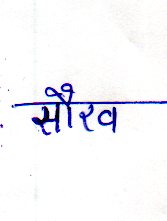 सौरव